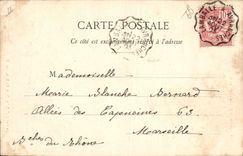 CARTE POSTALE
Ce côté est exclusivement réservé à l'adresse
Mademoiselle
Marie Blanche Bernard
Allées des Capucines 63
Marseille
B^ches du Rhône